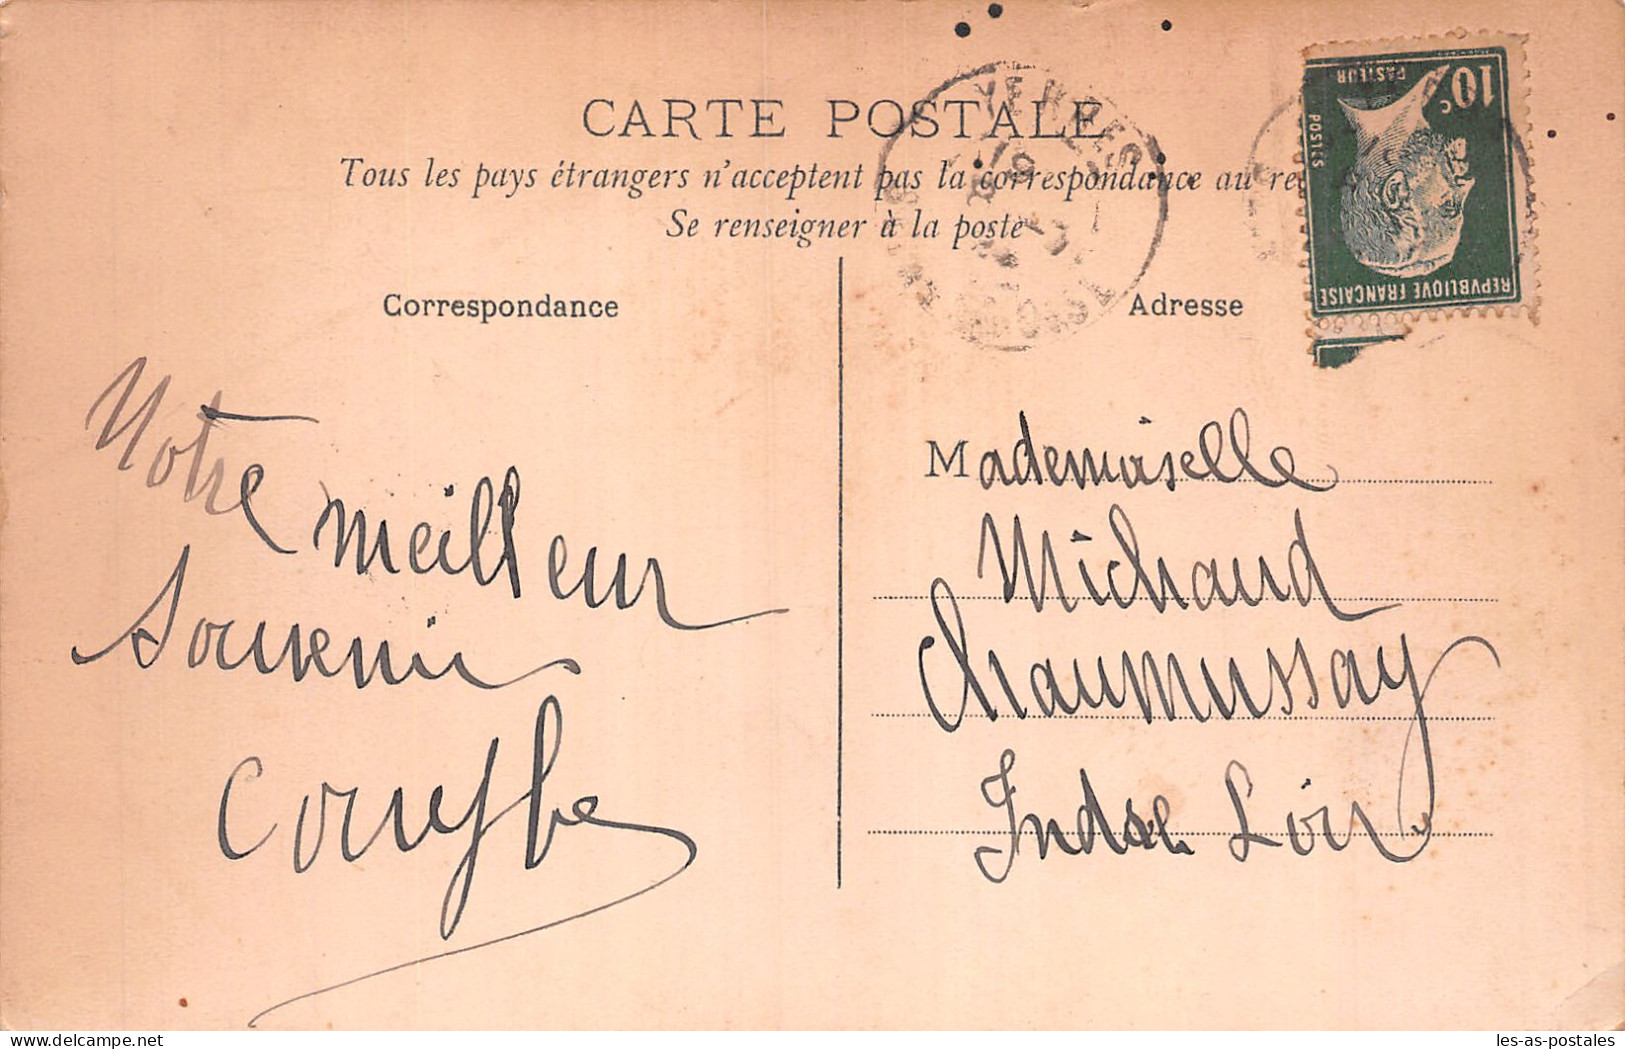 CARTE POSTALE
Tous les pays étrangers n'acceptent pas la correspondance au re
Se renseigner à la poste
Correspondance
Adresse
10c
PASTEUR
POSTES
REPVBLIQVE FRANÇAISE
YERRES
SEINE ET OISE
Notre meilleur
souvenir
Mademoiselle
Michaud
Chaumussay
Indre L Loir
delcampe.net
les-as-postales